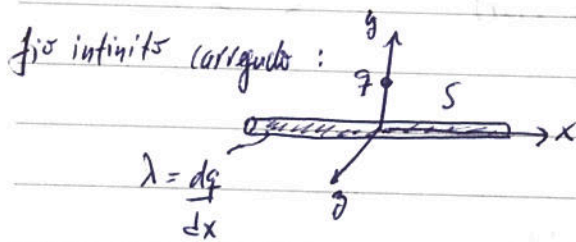 fio infinito carregado :
y
q
S
x
λ = dq
dx
z